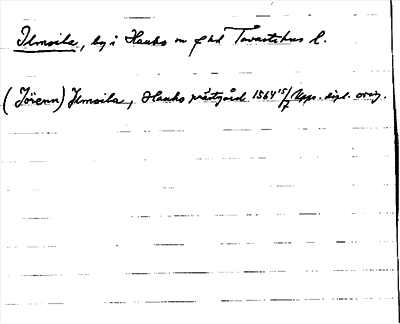 Ilmoila, by i Hauho sn f hd Tavastehus l.
(Jörenn) Jlmoila, Hauho prästgård 1564 15/7 Upps. dipl. orig.